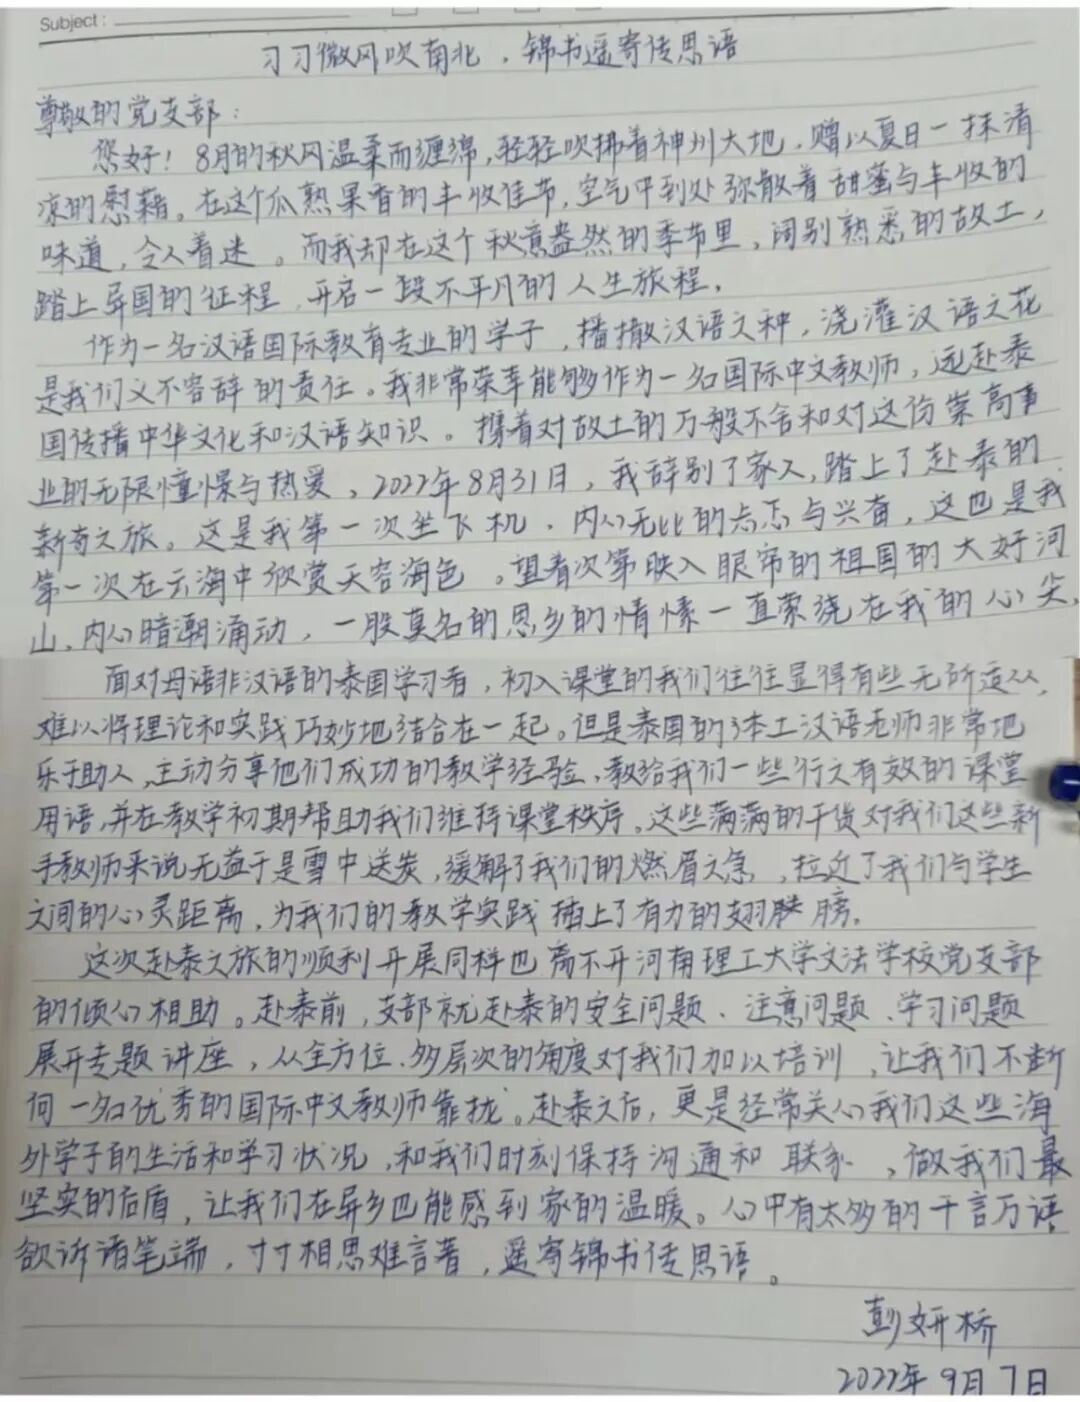 Subject:
习习微风吹南北，锦书遥寄传思语
尊敬的党支部：
您好！8月的秋风温柔而缠绵，轻轻吹拂着神州大地，赠以夏日一抹清
凉的慰藉。在这个瓜熟果香的丰收佳节，空气中到处弥散着甜蜜与丰收的
味道，令人着迷。而我却在这个秋意盎然的季节里，阔别熟悉的故土，
踏上异国的征程，开启一段不平凡的人生旅程。
作为一名汉语国际教育专业的学子，播撒汉语之种，浇灌汉语之花
是我们义不容辞的责任。我非常荣幸能够作为一名国际中文教师，远赴泰
国传播中华文化和汉语知识。携着对故土的万般不舍和对这份崇高事
业的无限憧憬与热爱，2022年8月31日，我辞别了家人，踏上了赴泰的
新奇之旅。这是我第一次坐飞机，内心无比的忐忑与兴奋，这也是我
第一次在云海中欣赏天容海色。望着次第映入眼帘的祖国的大好河
山，内心暗潮涌动，一股莫名的思乡的情愫一直萦绕在我的心尖。
面对母语非汉语的泰国学习者，初入课堂的我们往往显得有些无所适从，
难以将理论和实践巧妙地结合在一起。但是泰国的本土汉语老师非常地
乐于助人，主动分享他们成功的教学经验，教给我们一些行之有效的课堂
用语，并在教学初期帮助我们维持课堂秩序。这些满满的干货对我们这些新
手教师来说无益于是雪中送炭，缓解了我们的燃眉之急，拉近了我们与学生
之间的心灵距离，为我们的教学实践插上了有力的翅膀。
这次赴泰之旅的顺利开展同样也离不开河南理工大学文法学校党支部
的倾心相助。赴泰前，支部就赴泰的安全问题、注意问题、学习问题
展开专题讲座，从全方位、多层次的角度对我们加以培训，让我们不断
向一名优秀的国际中文教师靠拢。赴泰之后，更是经常关心我们这些海
外学子的生活和学习状况，和我们时刻保持沟通和联系，做我们最
坚实的后盾，让我们在异乡也能感到家的温暖。心中有太多的千言万语
欲诉诸笔端，寸寸相思难言著，遥寄锦书传思语。
彭妍桥
2022年9月7日